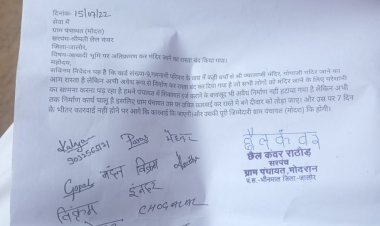 दिनांक 15/07/22
सेवा में
ग्राम पंचायत (मोदरा)
सरपंच-श्रीमती छैल कंवर
जिला-जालोर,
विषय-आबादी भूमि पर अतिक्रमण कर मंदिर जाने का रास्ता बंद किया गया।
महोदय,
सविनय निवेदन यह है कि वार्ड संख्या-9, परिवार के वास में कई वर्षों से श्री मंदिर, मंदिर जाने का
आम रास्ता है लेकिन अभी अवैध रूप से निर्माण कर रास्ता बंद कर दिया गया है तो सभी लोगों को मंदिर जाने के लिए परेशानी
का सामना करना पड़ रहा है हमने पंचायत में शिकायतें दर्ज कराने के बावजूद भी अवैध निर्माण नहीं हटाया गया है लेकिन अभी
तक निर्माण कार्य चालू है इसलिए ग्राम पंचायत उस पर उचित कारवाई कर रास्ते में बने दीवार को तोड़ा जाए। और उस पर 7 दिन
के भीतर कारवाई नहीं होने पर आगे कि कारवाई कि जाएगी और उसकी पूरी जिम्मेदारी ग्राम पंचायत (मोदरा) कि होगी।
Paras
छैल कंवर
Gopal विक्रम
विक्रम
छैल कवर राठौड़
सरपंच
ग्राम पंचायत, मोदरान
पं.स.-भीनमाल जिला-जालोर